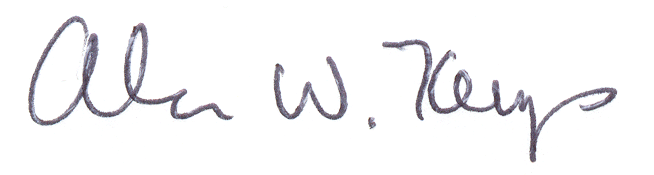 Alan W. Kemp